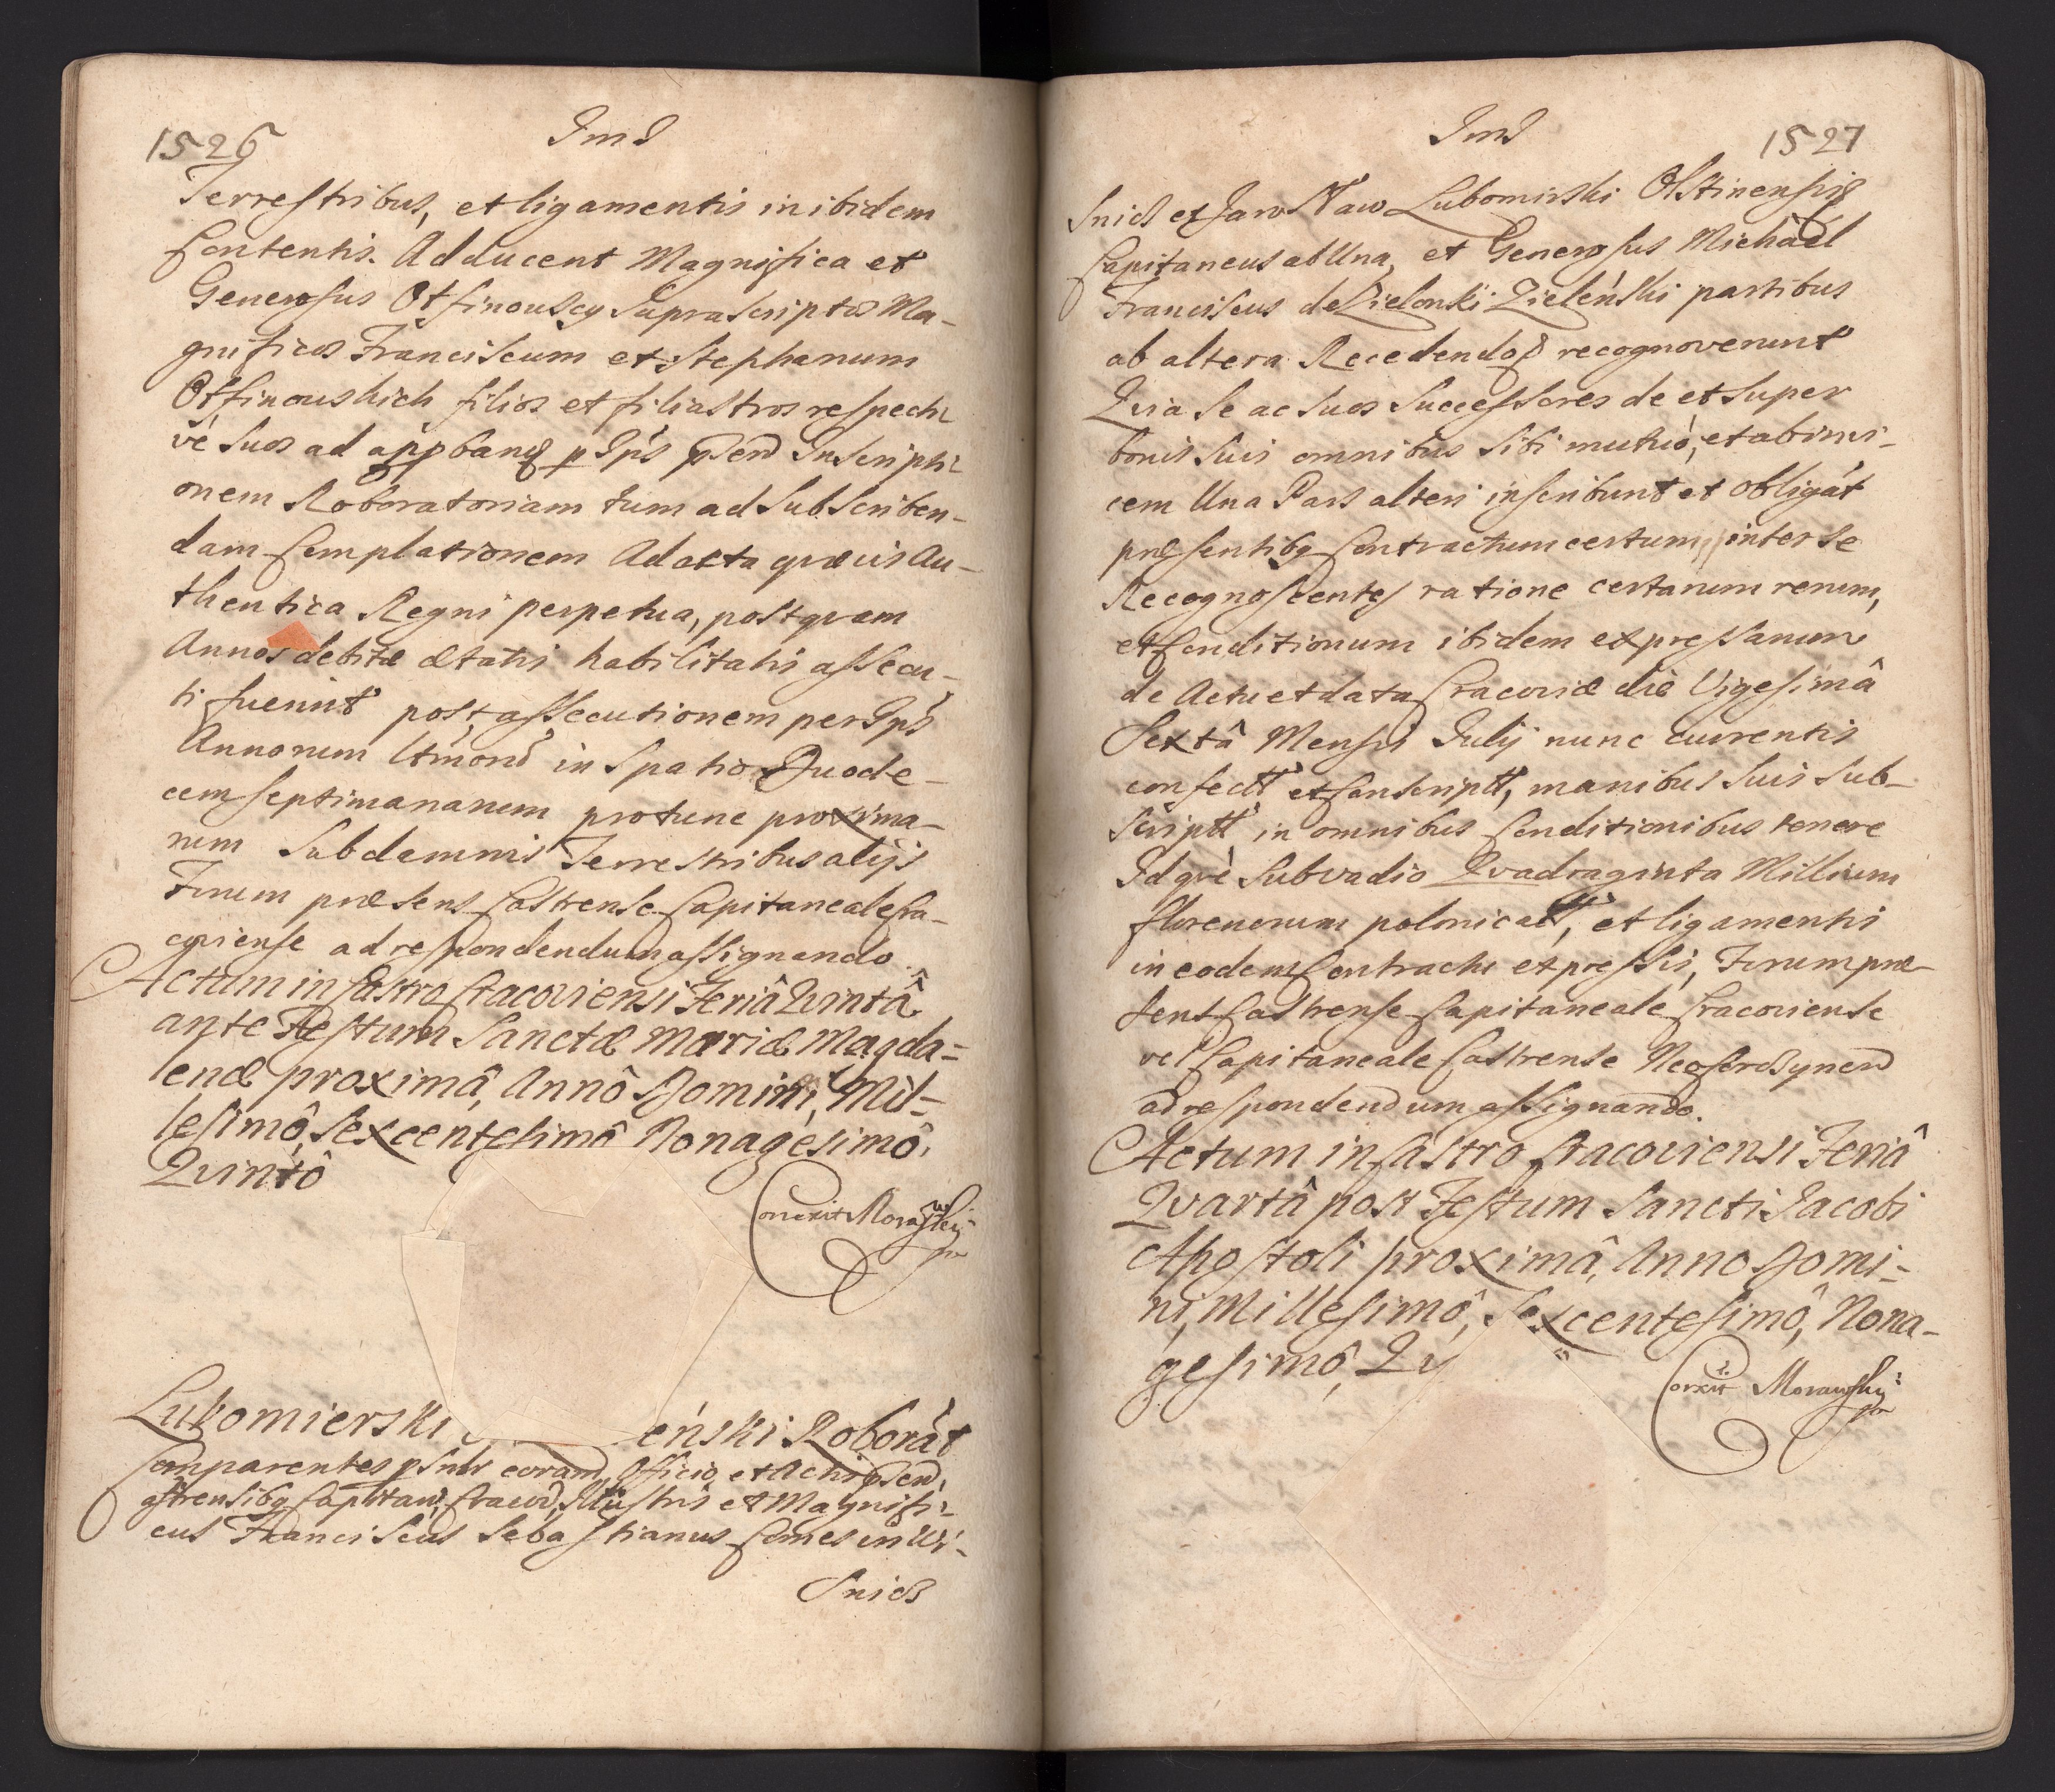 1526
Ind
Terrestribus, et ligamentis inibidem
Contentis. Adducent Magnifica et
Generosus Otfinouscy Suprascriptos Ma-
gnificos Franciscum et Stephanum
Otfinouskich filios et filiastros respecti
vè suos ad appband p Ips psen Inscripti-
onem Roboratoriam tum ad Subscriben-
dam Complationem Ad acta quævis Au-
thentica Regni perpetua, postquam
Annos debitæ ætatis habilitatis assecu-
ti fuerint post assecutionem per Ips
Annorum in Spatio Duode-
cem septimanarum protunc proxima-
rum Sub damnis Terrestribus alijs
Forum præsens Castrense Capitaneale Cra-
coviense ad respondendum assignando
Actum in Castro Cracoviensi Feriâ Qvintâ
ante Festum Sanctæ Mariæ Magda=
lenæ proximâ, Annô Domini, Mil=
lesimô, Sexcentesimô Nonagesimô,
Qvintô
Correxit Morawskij
mp
Lubomierski eński Roborat
Comparentes psntr coram Officio, et Actis psen,
Castrensibq Capitan, Cracov, Illustris et Magnifi-
cus Franciscus Sebastianus Comes in Wi-
snicz
Ind
1527
Snicz et Jarosław Lubomirski Olstinensis
Capitaneus ab Una, et Generosus Michael
Franciscus de Zielonki Zieleński partibus
ab altera Recedendo recognoverunt
Qvia Se ac Suos Successores de et Super
bonis Suis omnibus Sibi mutuò, et abinvi-
cem Una Pars alteri inscribunt et obligat
præsentibq Contractum certum inter Se
Recognoscentes ratione certarum rerum,
et Conditionum ibidem expressarum
de Actu et data Cracoviæ die Vigesimâ
Sextâ Mensis Julij nunc currentis
confectt et Conscriptt, manibus Suis Sub-
scriptt in omnibus Conditionibus tenere
Idqve Sub vadio Qvadraginta Millium
florenorum polonicatt, et ligamentis
in eodem Contractu expressis, Forum præ-
sens Castrense Capitaneale Cracoviense
vel Capitaneale Castrense
ad respondendum assignando.
Actum in Castro Cracoviensi Feriâ
Qvartâ post Festum Sancti Jacobi
Apostoli proximâ, Anno Domi-
ni, Millesimô, Sexcentesimô, Nona-
gesimô, Qv
Correxit Morawskij
mp